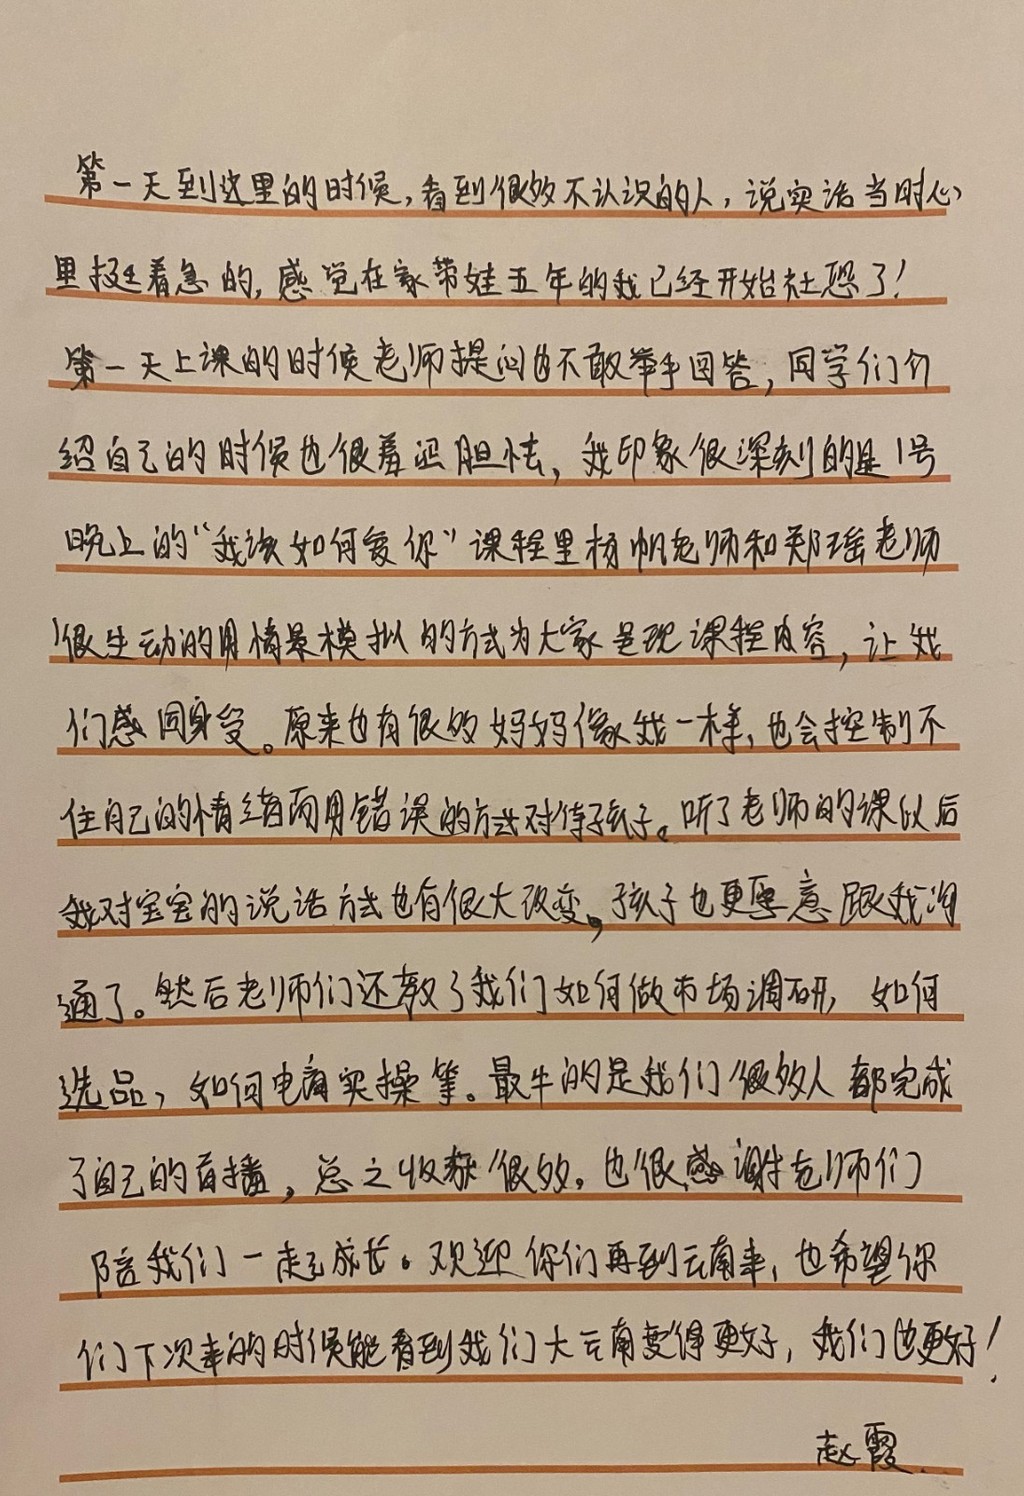 第一天到这里的时候,看到很多不认识的人,说实话当时心
里挺着急的,感觉在家带娃五年的我已经开始社恐了!
第一天上课的时候老师提问也不敢举手回答,同学们介
绍自己的时候也很羞涩胆怯,我印象很深刻的是1号
晚上的“我该如何爱你”课程里杨帆老师和郑瑶老师
很生动的用情景模拟的方式为大家呈现课程内容,让我
们感同身受。原来也有很多妈妈像我一样,也会控制不
住自己的情绪而用错误的方式对待孩子。听了老师的课以后
我对宝宝的说话方式也有很大改变。孩子也更愿意跟我沟
通了。然后老师们还教了我们如何做市场调研,如何
选品,如何电商实操等。最牛的是我们很多人都完成
了自己的首播,总之收获很多。也很感谢老师们
陪我们一起成长。欢迎你们再到云南来,也希望你
们下次来的时候能看到我们大云南变得更好,我们也更好!
赵霞